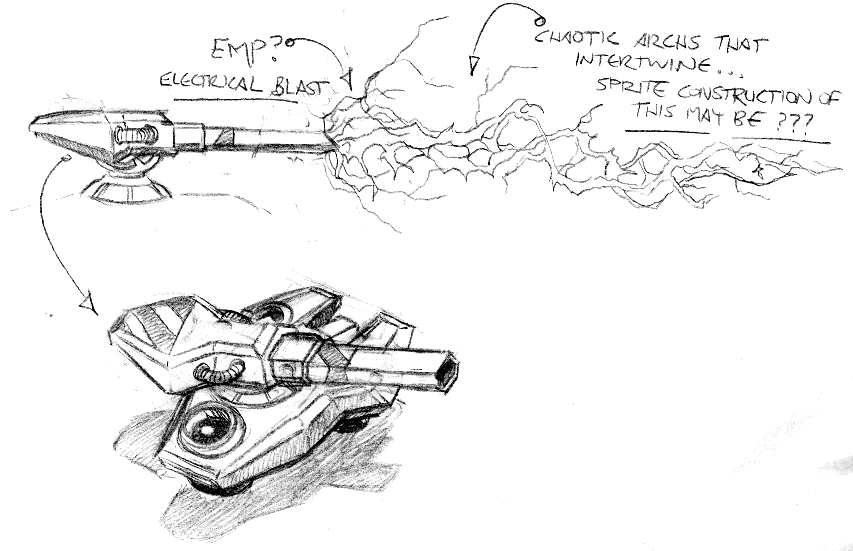 EMP?
ELECTRICAL BLAST
CHAOTIC ARCHS THAT
INTERTWINE...
SPRITE CONSTRUCTION OF
THIS MAY BE ???